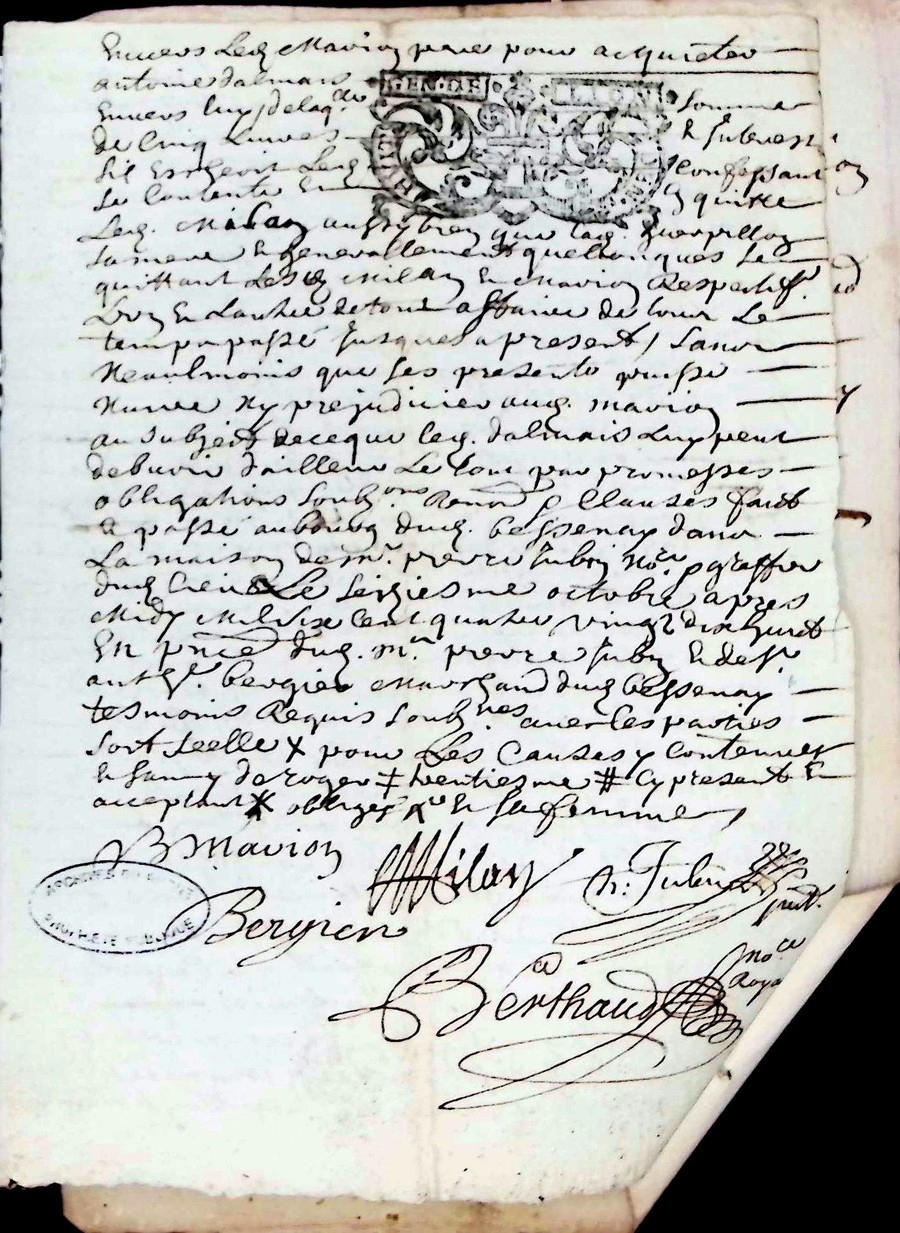 Envers Led Mavion pere pour acquieter
antoine dalmais
GEN. DE LYON
Envers luy de laq.lle Somme
de Cinq Livres & Interest
sil Escheoit Led Confessant
Se Contente En quitte
Led. Milan aussy bien que lad.
sa mere & generallement quelconques Se
quittant Lesd Milan & Mavion Respectif.t
L'un & L'autre de tout affaire de tour Le
temps passé Jusques a present / Sans
Neaulmoins que Les presente puisse
Nuire Ny prejudicier aud. mavion
au subject de ce que led. dalmais Luy peut
debvoir d'ailleur Le tout par promesses
obligations Soub.ons Renon.on & Clauses fait
& passé au bourg dud. bessenay dans
La maison de m.e pierre Jubin No.re & greffier
dud lieu Le seiziesme octobre apres
Midy Mil Six Cent quatre vingt dix huict
En p.nce dud. m.e pierre Jubin & de s.r
anth.e bergier Marchand dud bessenay
tesmoins Requis soub.nes avec les parties
Soit Scelle X pour Les Causes y Contenues
& sans y deroger ‡ trentiesme # Cy present &
acceptant X obliges & sa femme
B Mavion Milan P: Jubin p.nt
ARCHIVES DU
PROPRIÉTÉ PUBLIQUE
Bergier
Berthaud No.re Roya